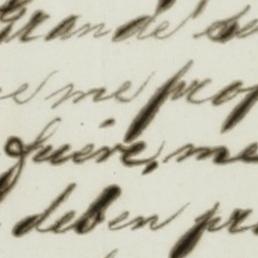 Grande su
e me prop
fuére, me
deben pr